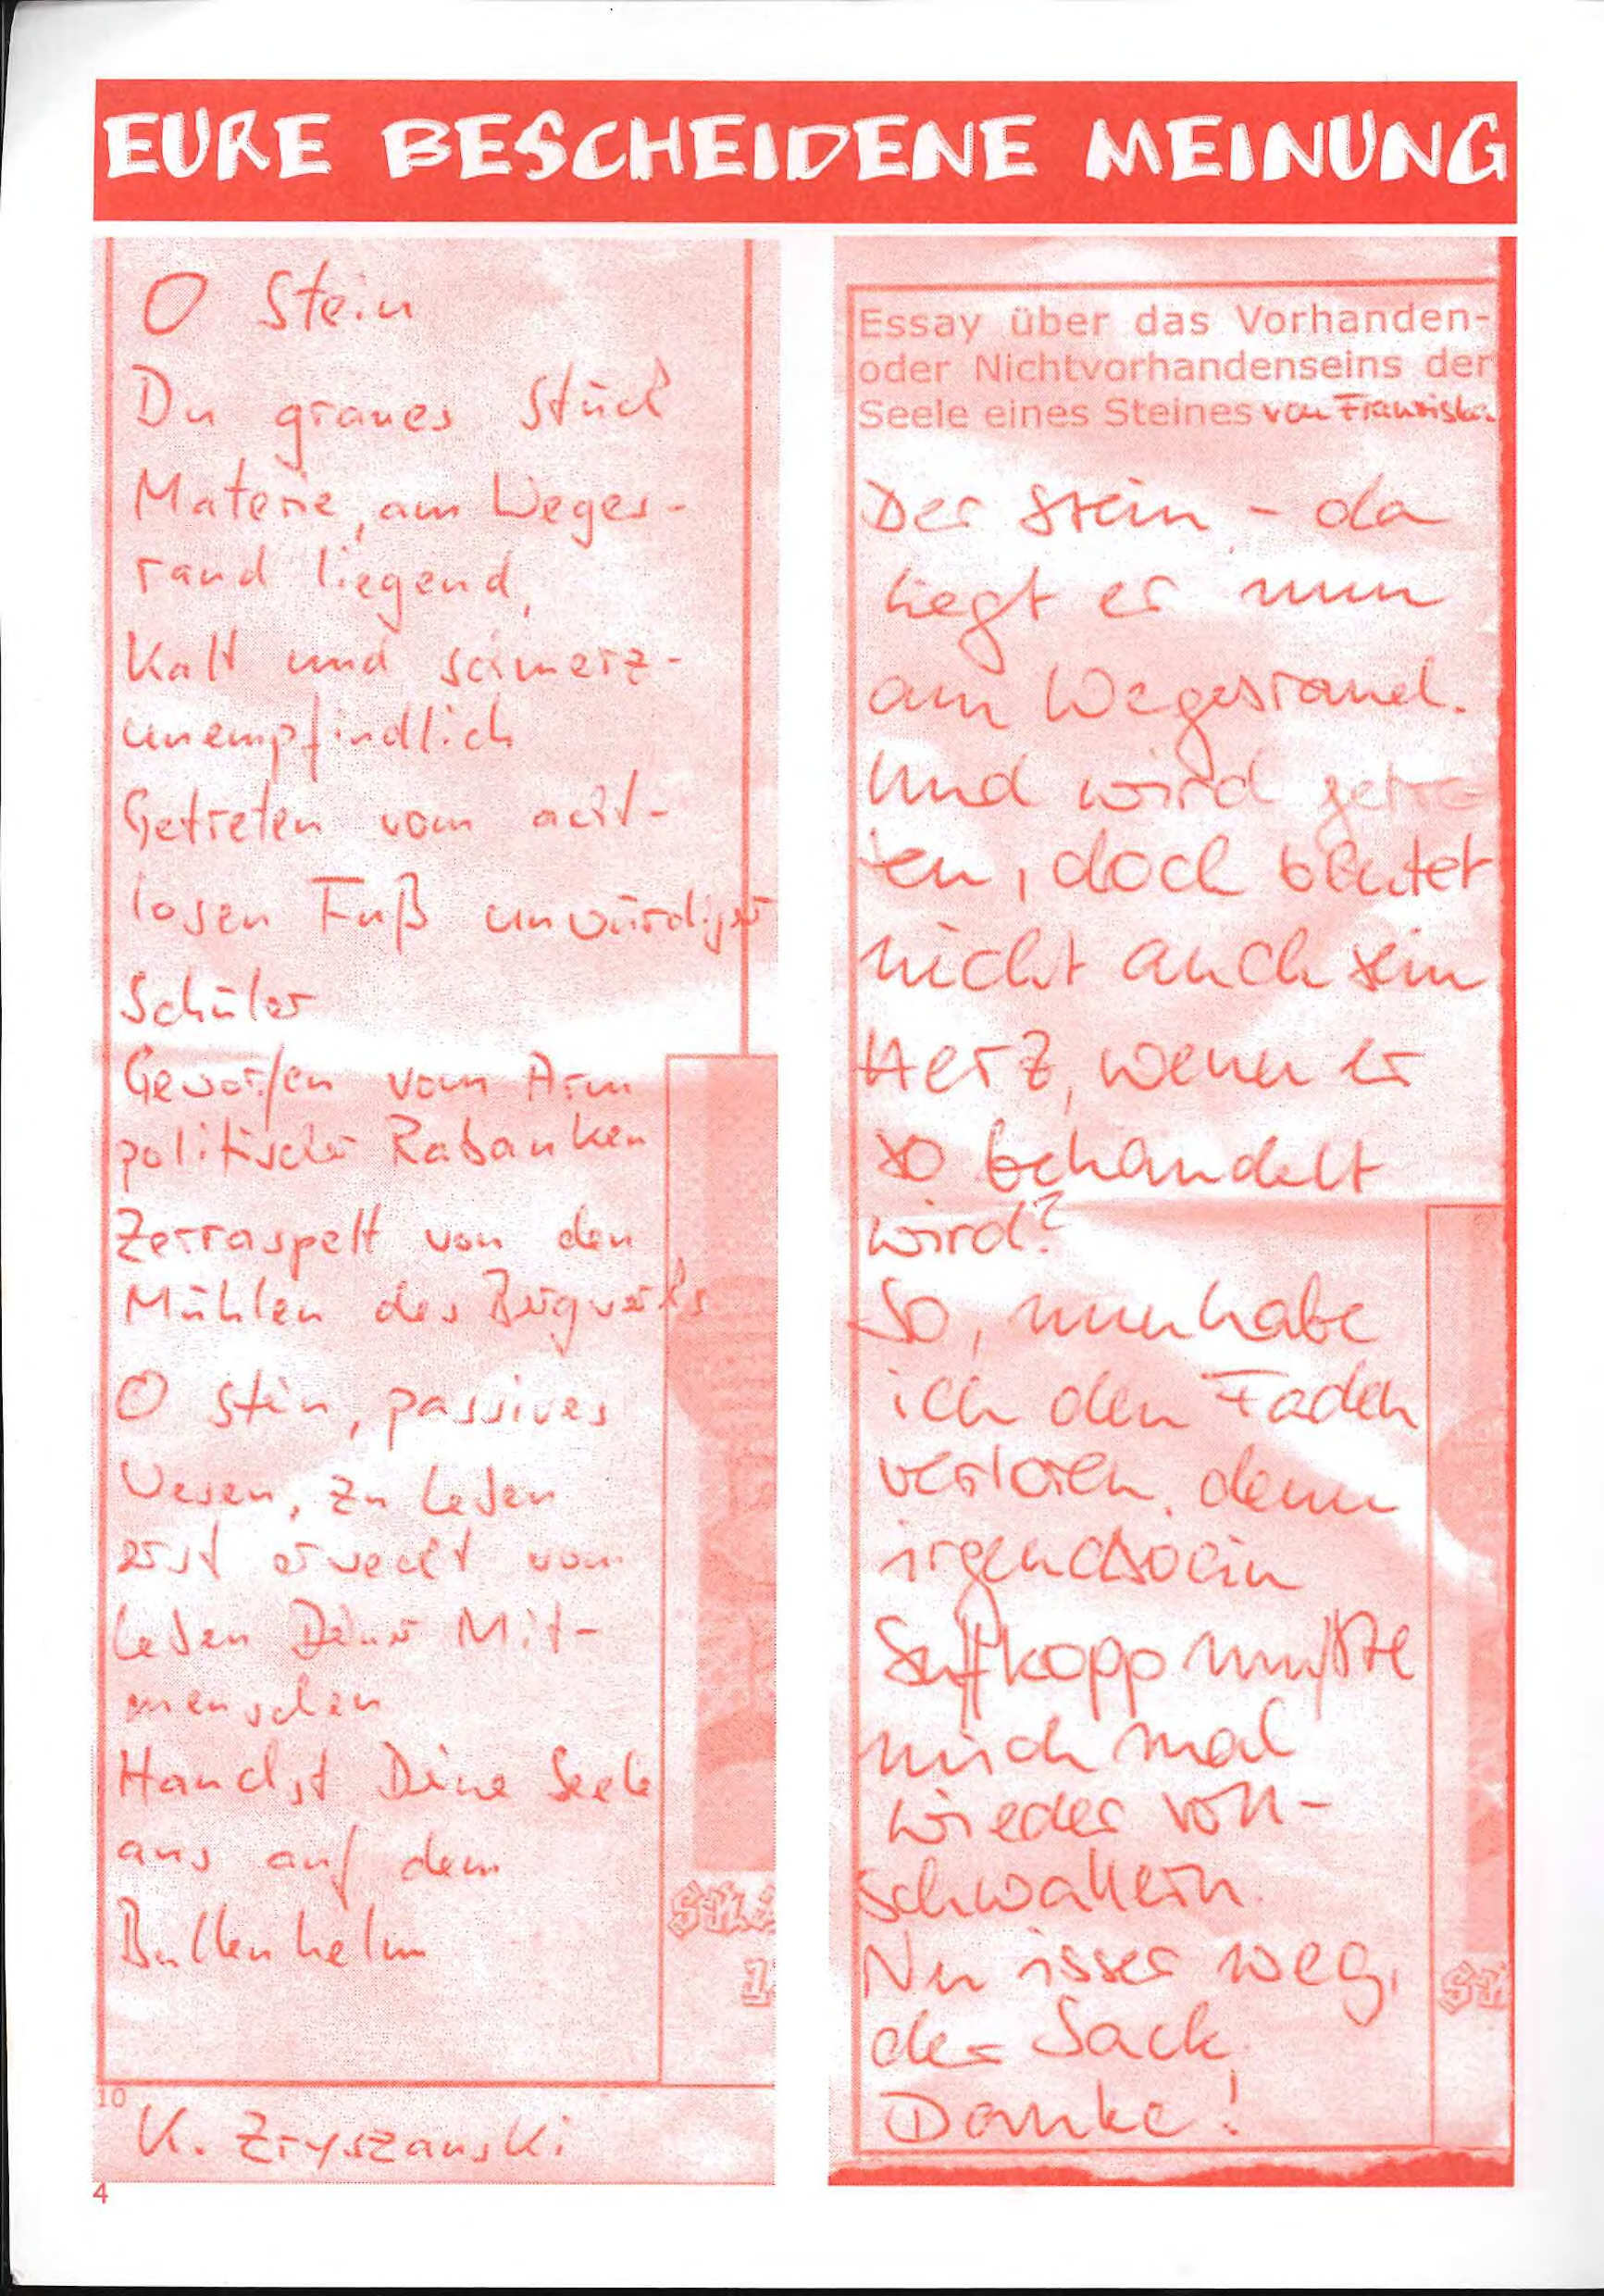 EURE BESCHEIDENE MEINUNG
O Stein
Du graues Stück
Materie, am Weges-
rand liegend,
Kalt und schmerz-
unempfindlich
Getreten vom acht-
losen Fuß unwürdiger
Schüler
Geworfen vom Arm
politischer Rabauken
Zerraspelt von den
Mühlen des Bergwerks
O Stein, passives
Wesen, zu Leben
erst erweckt vom
Leben Deiner Mit-
menschen
Hauchst Deine Seele
aus auf dem
Bullenhelm
10
K. Zryszanski
4
Essay über das Vorhanden-
oder Nichtvorhandenseins der
Seele eines Steines von Franziska
Der Stein - da
liegt er nun
am Wegesrand.
Und wird getre-
ten, doch blutet
nicht auch sein
Herz, wenn er
so behandelt
wird?
So, nun habe
ich den Faden
verloren, denn
irgendsoein
Saftkopp mußte
mich mal
wieder voll-
schwallern.
Nu isser weg,
der Sack.
Danke!